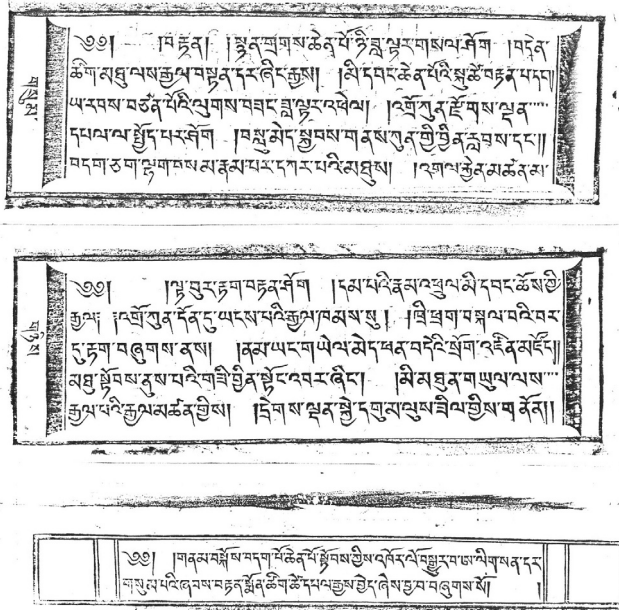 ༄༅། །བརྟན། །སྙན་གྲགས་ཆེན་པོ་ཉི་ཟླ་ལྟར་གསལ་ཤོག །བདེན་
ཚིག་མཐུ་ལས་རྒྱལ་བསྟན་དར་ཞིང་རྒྱས། །མི་དབང་ཆེན་པོའི་སྐུ་ཚེ་བརྟན་པ་དང༌།
གསུམ་
ཡ་རབས་བཙན་པོའི་ལུགས་བཟང་ཟླ་ལྟར་འཕེལ། །འགྲོ་ཀུན་རྫོགས་ལྡན་
དཔལ་ལ་སྤྱོད་པར་ཤོག །བསླུ་མེད་སྐྱབས་གནས་ཀུན་གྱི་བྱིན་རླབས་དང༌།།
བདག་ཅག་ལྷག་བསམ་རྣམ་པར་དཀར་བའི་མཐུས། །འགལ་རྐྱེན་མཚན་མ་
༄༅། །ལྟ་བུར་རྟག་བརྟན་ཤོག །དམ་པའི་རྣམ་འཕྲུལ་མི་དབང་ཆོས་ཀྱི་
རྒྱལ༔ །འགྲོ་ཀུན་དོན་དུ་ཡངས་པའི་རྒྱལ་ཁམས་སུ། །ཁྲི་ཕྲག་བསྐལ་བའི་བར་
དུ་རྟག་བཞུགས་ནས། །ནམ་ཡང་གཡེལ་མེད་ཕན་བདེའི་སྲོག་འཛིན་མཛོད།།
མཐུ་སྟོབས་ནུས་པའི་གཟི་བྱིན་སྟོང་འབར་ཞིང༌། །མི་མཐུན་གཡུལ་ལས་
རྒྱལ་བའི་རྒྱལ་མཚན་གྱིས། །དྲེགས་ལྡན་སྐྱེ་དགུ་མ་ལུས་ཟིལ་གྱིས་གནོན།།
༄༅། །གནམ་བསྐོས་བདག་པོ་ཆེན་པོ་སྟོབས་ཀྱིས་འཁོར་ལོ་བསྒྱུར་བ་ཨ་ལིག་སན་དར་
གསུམ་པའི་ཞབས་བརྟན་སྨོན་ཚིག་ཚེ་དཔལ་རྒྱས་བྱེད་ཞེས་བྱ་བ་བཞུགས་སོ། །